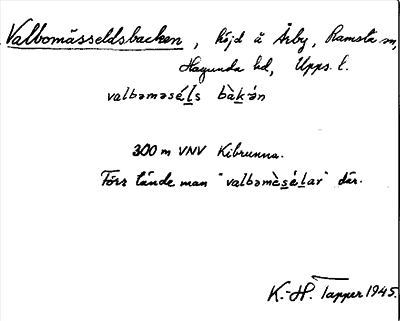 Valbomässeldsbacken, höjd å Ärby, Ramsta sn,
Hagunda hd, Upps. l.
valbəməsé́ḻs bàḵə́n
300 m VNV Kibrunna.
Förr tände man "valbəmès̱éḻar" där.
K.-H. Tapper 1945.